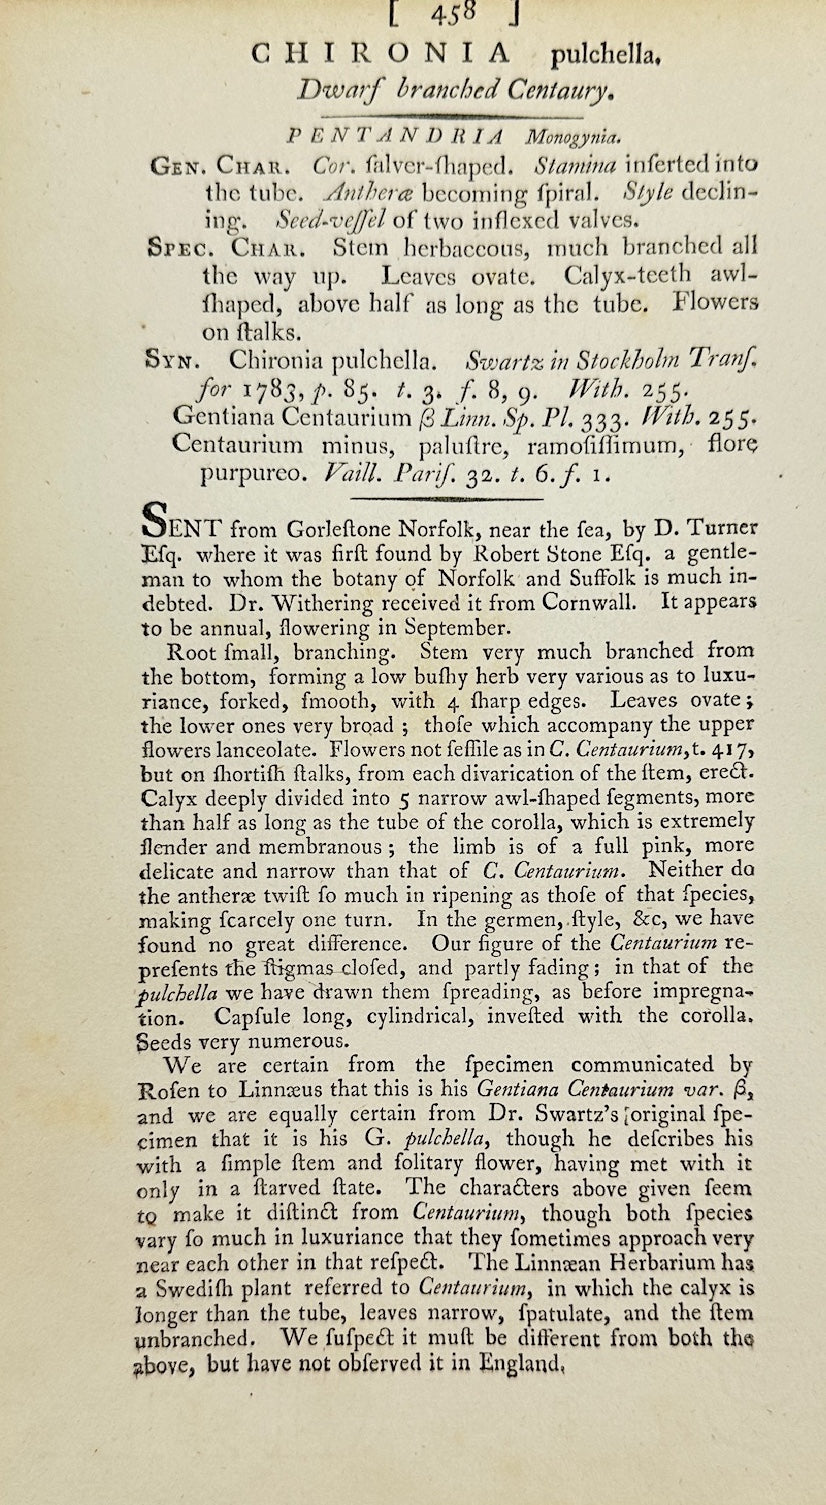 [ 458 ]
CHIRONIA pulchella.
Dwarf branched Centaury.
PENTANDRIA Monogynia.
GEN. CHAR. Cor. ſalver-ſhaped. Stamina inſerted into
the tube. Antheræ becoming ſpiral. Style declin-
ing. Seed-veſſel of two inflexed valves.
SPEC. CHAR. Stem herbaceous, much branched all
the way up. Leaves ovate. Calyx-teeth awl-
ſhaped, above half as long as the tube. Flowers
on ſtalks.
SYN. Chironia pulchella. Swartz in Stockholm Tranſ.
for 1783, p. 85. t. 3. f. 8, 9. With. 255.
Gentiana Centaurium β Linn. Sp. Pl. 333. With. 255.
Centaurium minus, paluſtre, ramoſiſſimum, flore
purpureo. Vaill. Pariſ. 32. t. 6. f. 1.
SENT from Gorleſtone Norfolk, near the ſea, by D. Turner
Eſq. where it was firſt found by Robert Stone Eſq. a gentle-
man to whom the botany of Norfolk and Suffolk is much in-
debted. Dr. Withering received it from Cornwall. It appears
to be annual, flowering in September.
Root ſmall, branching. Stem very much branched from
the bottom, forming a low buſhy herb very various as to luxu-
riance, forked, ſmooth, with 4 ſharp edges. Leaves ovate;
the lower ones very broad ; thoſe which accompany the upper
flowers lanceolate. Flowers not ſeſſile as in C. Centaurium, t. 417,
but on ſhortiſh ſtalks, from each divarication of the ſtem, erect.
Calyx deeply divided into 5 narrow awl-ſhaped ſegments, more
than half as long as the tube of the corolla, which is extremely
ſlender and membranous ; the limb is of a full pink, more
delicate and narrow than that of C. Centaurium. Neither do
the antheræ twiſt ſo much in ripening as thoſe of that ſpecies,
making ſcarcely one turn. In the germen, ſtyle, &c, we have
found no great difference. Our figure of the Centaurium re-
preſents the ſtigmas cloſed, and partly fading; in that of the
pulchella we have drawn them ſpreading, as before impregna-
tion. Capſule long, cylindrical, inveſted with the corolla.
Seeds very numerous.
We are certain from the ſpecimen communicated by
Roſen to Linnæus that this is his Gentiana Centaurium var. β,
and we are equally certain from Dr. Swartz's [original ſpe-
cimen that it is his G. pulchella, though he deſcribes his
with a ſimple ſtem and ſolitary flower, having met with it
only in a ſtarved ſtate. The characters above given ſeem
to make it diſtinct from Centaurium, though both ſpecies
vary ſo much in luxuriance that they ſometimes approach very
near each other in that reſpect. The Linnæan Herbarium has
a Swediſh plant referred to Centaurium, in which the calyx is
longer than the tube, leaves narrow, ſpatulate, and the ſtem
unbranched. We ſuſpect it muſt be different from both the
above, but have not obſerved it in England.